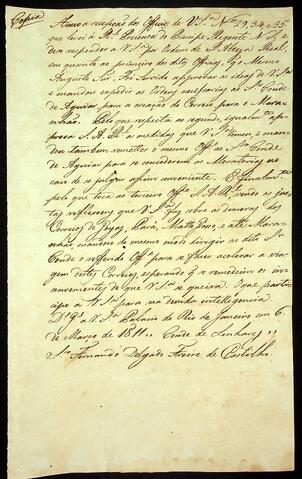 Copia
Accuso a recepção dos Officios de V. S.ª N.os 29, 34, e 35
que levei á R. Prezença do Principe Regente N. S., e
devo responder a V. S.ª por Ordem de S. Alteza Real,
em quanto ao primeiro dos ditos Officios, q o Mesmo
Augusto Snr. Foi Servido approvar as ideas de V. S.ª
e mandou expedir as Ordens necessarias ao Sr. Conde
de Aguiar para a creação do Correio para o Mara-
nhão. Pelo que respeita ao segundo, igualm.te ap-
prova S. A. R. as medidas que V. S.ª tomou, e man-
dou tambem remetter o mesmo Off.º ao Sr. Conde
de Aguiar para se concederem as Moratorias no
caso de se julgar assim conveniente. E finalm.te
pelo que toca ao terceiro Off.º S. A. R. vendo as jus-
tas reflexoens que V. S.ª faz sobre as demoras dos
Correios de Goyaz, Pará, Matto Grosso, e até Mara-
nhão, mandou do mesmo modo dirigir ao dito Sr.
Conde o referido Off.º para se fazer accelerar a via-
gem destes Correios, esperando q se remedeiem os in-
convenientes de que V. S.ª se queixa. O que parti-
cipo a V. S.ª para sua devida intelligencia.
D.s G.e a V. S.ª Palacio do Rio de Janeiro em 6
de Março de 1811 .. Conde de Linhares ..
Sr. Fernando Delgado Freire de Castilho.